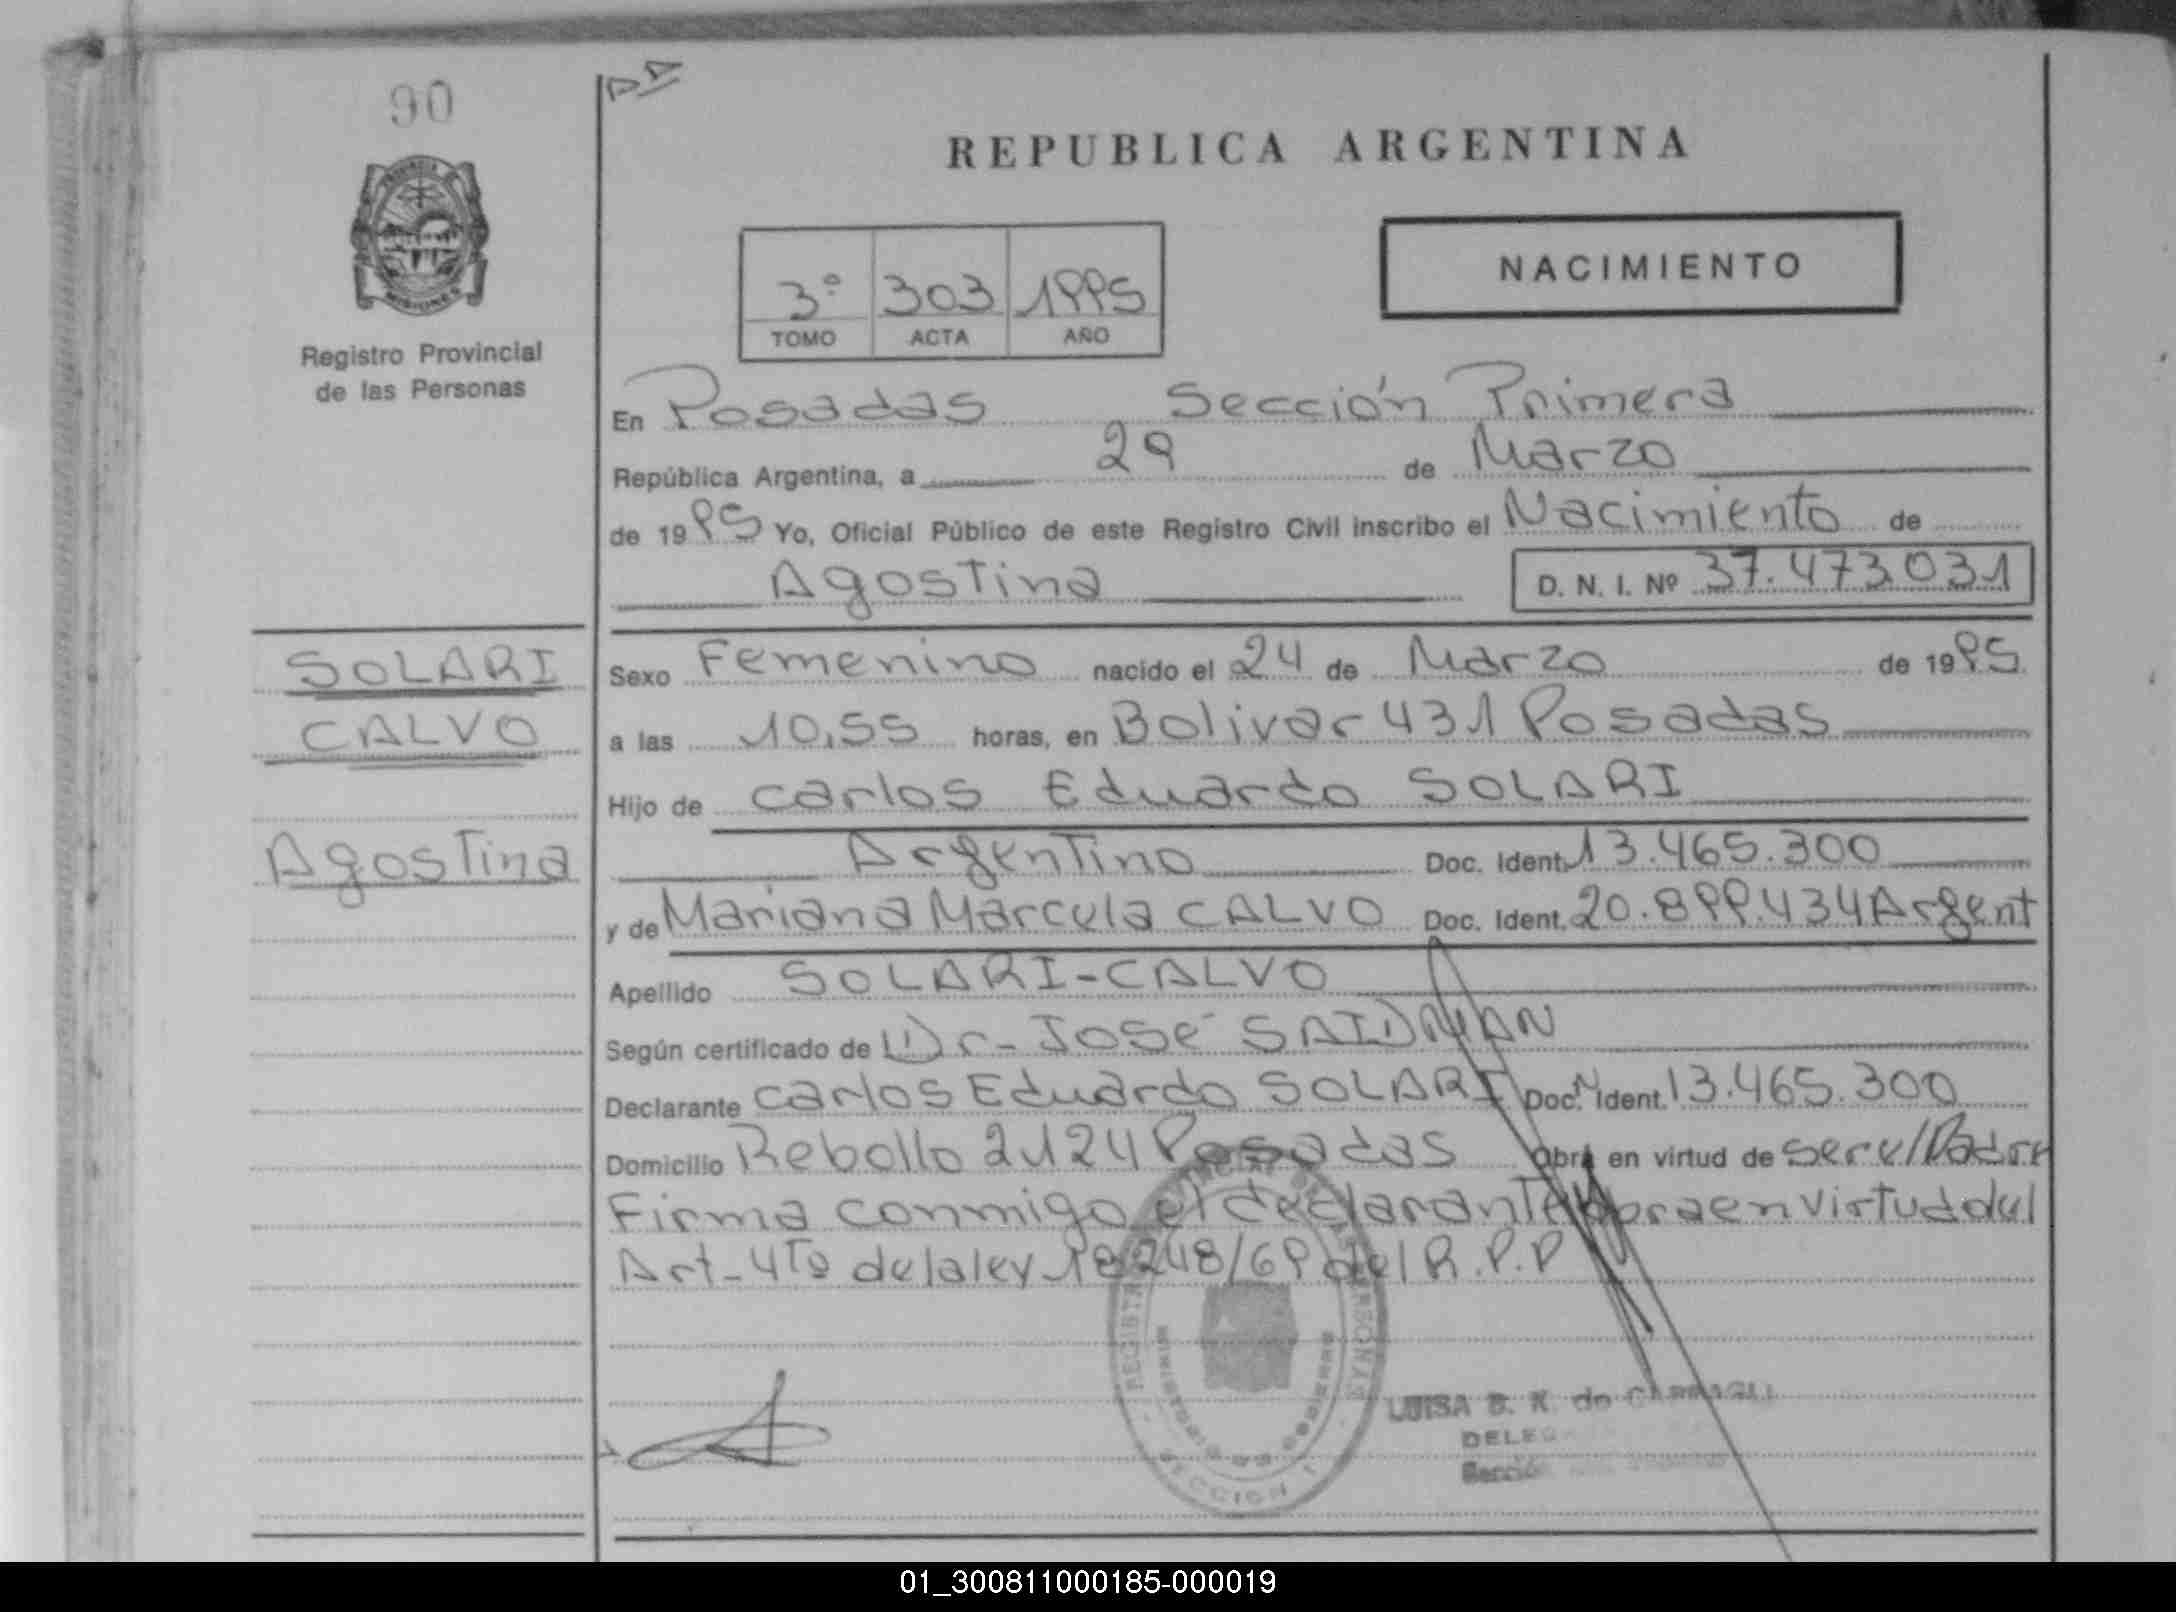 90
REPUBLICA ARGENTINA
3º 303 1995
TOMO ACTA AÑO
NACIMIENTO
MISIONES
Registro Provincial
de las Personas
En Posadas Sección Primera
República Argentina, a 29 de Marzo
de 1995 Yo, Oficial Público de este Registro Civil inscribo el Nacimiento de
Agostina D. N. I. Nº 37.473.031
SOLARI
CALVO
Agostina
Sexo Femenino nacido el 24 de Marzo de 1995.
a las 10,55 horas, en Bolivar 431 Posadas
Hijo de Carlos Eduardo SOLARI
Argentino Doc. Ident. 13.465.300
y de Mariana Marcela CALVO Doc. Ident. 20.899.434 Argent
Apellido SOLARI-CALVO
Según certificado de Dr- José SAIDMAN
Declarante Carlos Eduardo SOLARI Doc. Ident. 13.465.300
Domicilio Rebollo 2124 Posadas Obra en virtud de ser el Padre
Firma conmigo el declarante obra en virtud del
Art- 4to de la ley 18248/69 del R.P.P
LUISA B. K. de
SECCION 1
01_300811000185-000019